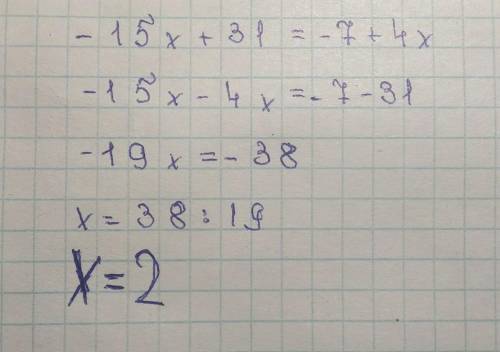 - 15x + 31 = - 7 + 4x
- 15x - 4x = - 7 - 31
- 19x = - 38
x = 38 : 19
x = 2